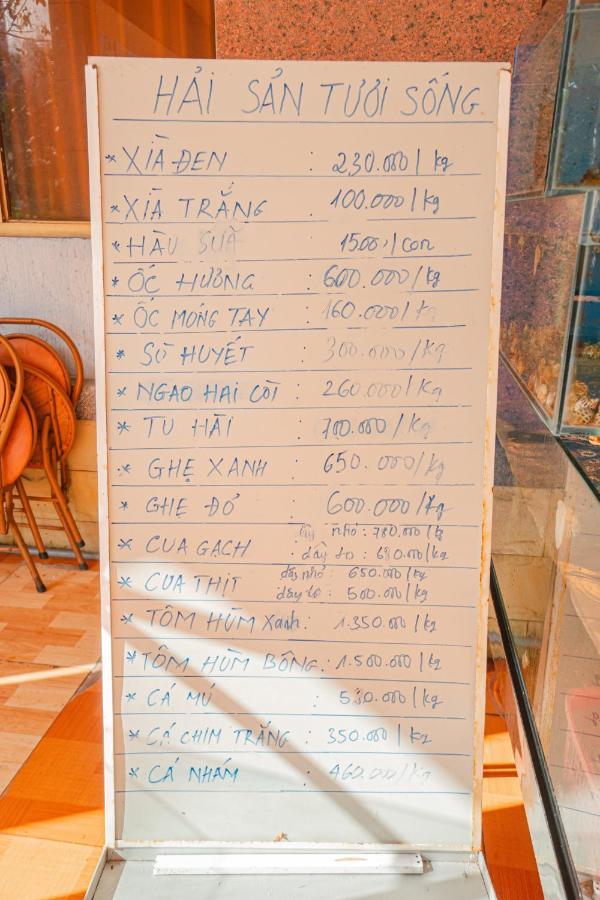 HẢI SẢN TƯƠI SỐNG
* XÌA ĐEN : 230.000 / kg
* XÌA TRẮNG : 100.000 / kg
* HÀU SỮA 1500,/con
* ỐC HƯƠNG : 600.000/kg
* ỐC MÓNG TAY : 160.000/kg
* SÒ HUYẾT : 300.000/kg
* NGAO HAI CỒI : 260.000/kg
* TU HÀI : 700.000/kg
* GHẸ XANH : 650.000/kg
* GHẸ ĐỎ : 600.000/kg
* CUA GẠCH dây nhỏ : 780.000/kg
: dây to : 690.000/kg
* CUA THỊT dây nhỏ : 650.000/kg
dây to : 500.000/kg
* TÔM HÙM Xanh : 1.350.000/kg
* TÔM HÙM BÔNG : 1.500.000/kg
* CÁ MÚ : /kg
* CÁ CHIM TRẮNG : 350.000/kg
* CÁ NHÁM : 460.000/kg